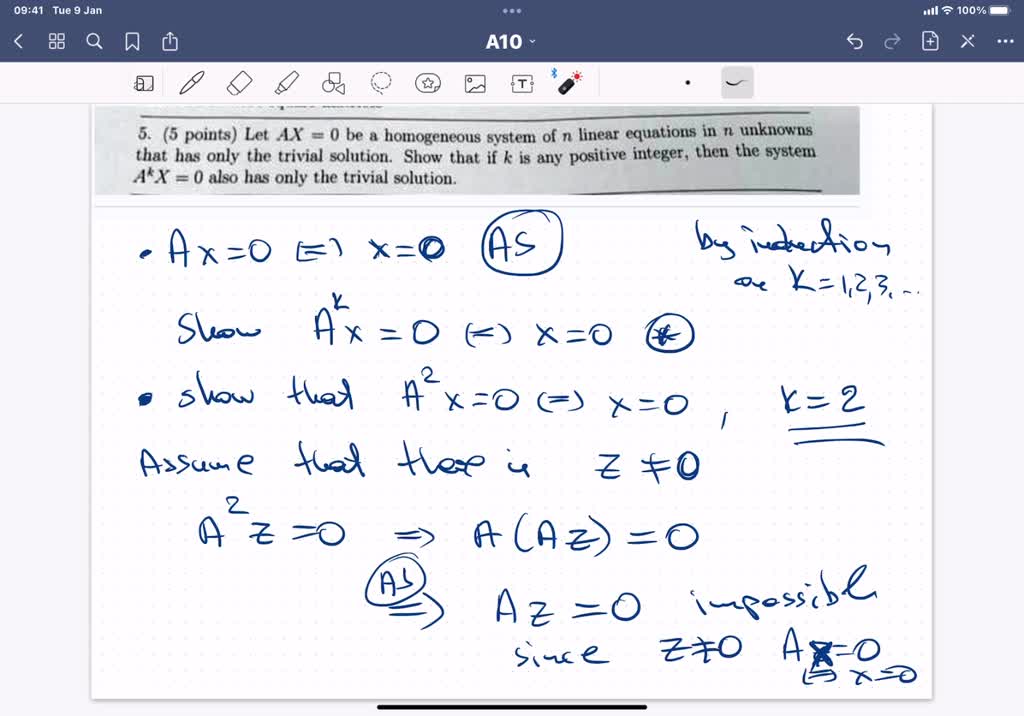 09:41 Tue 9 Jan
100%
A10
5. (5 points) Let AX = 0 be a homogeneous system of n linear equations in n unknowns
that has only the trivial solution. Show that if k is any positive integer, then the system
AᵏX = 0 also has only the trivial solution.
• Ax=0 (=) x=0 (AS)
by induction
on K=1,2,3,...
Show Aᴷx = 0 (=) x=0 (*)
• show that A²x=0 (=) x=0 , K=2
Assume that there is z ≠0
A²z=0 => A(Az)=0
(AS) => Az=0 impossible
since z≠0 Ax=0
(=) x=0